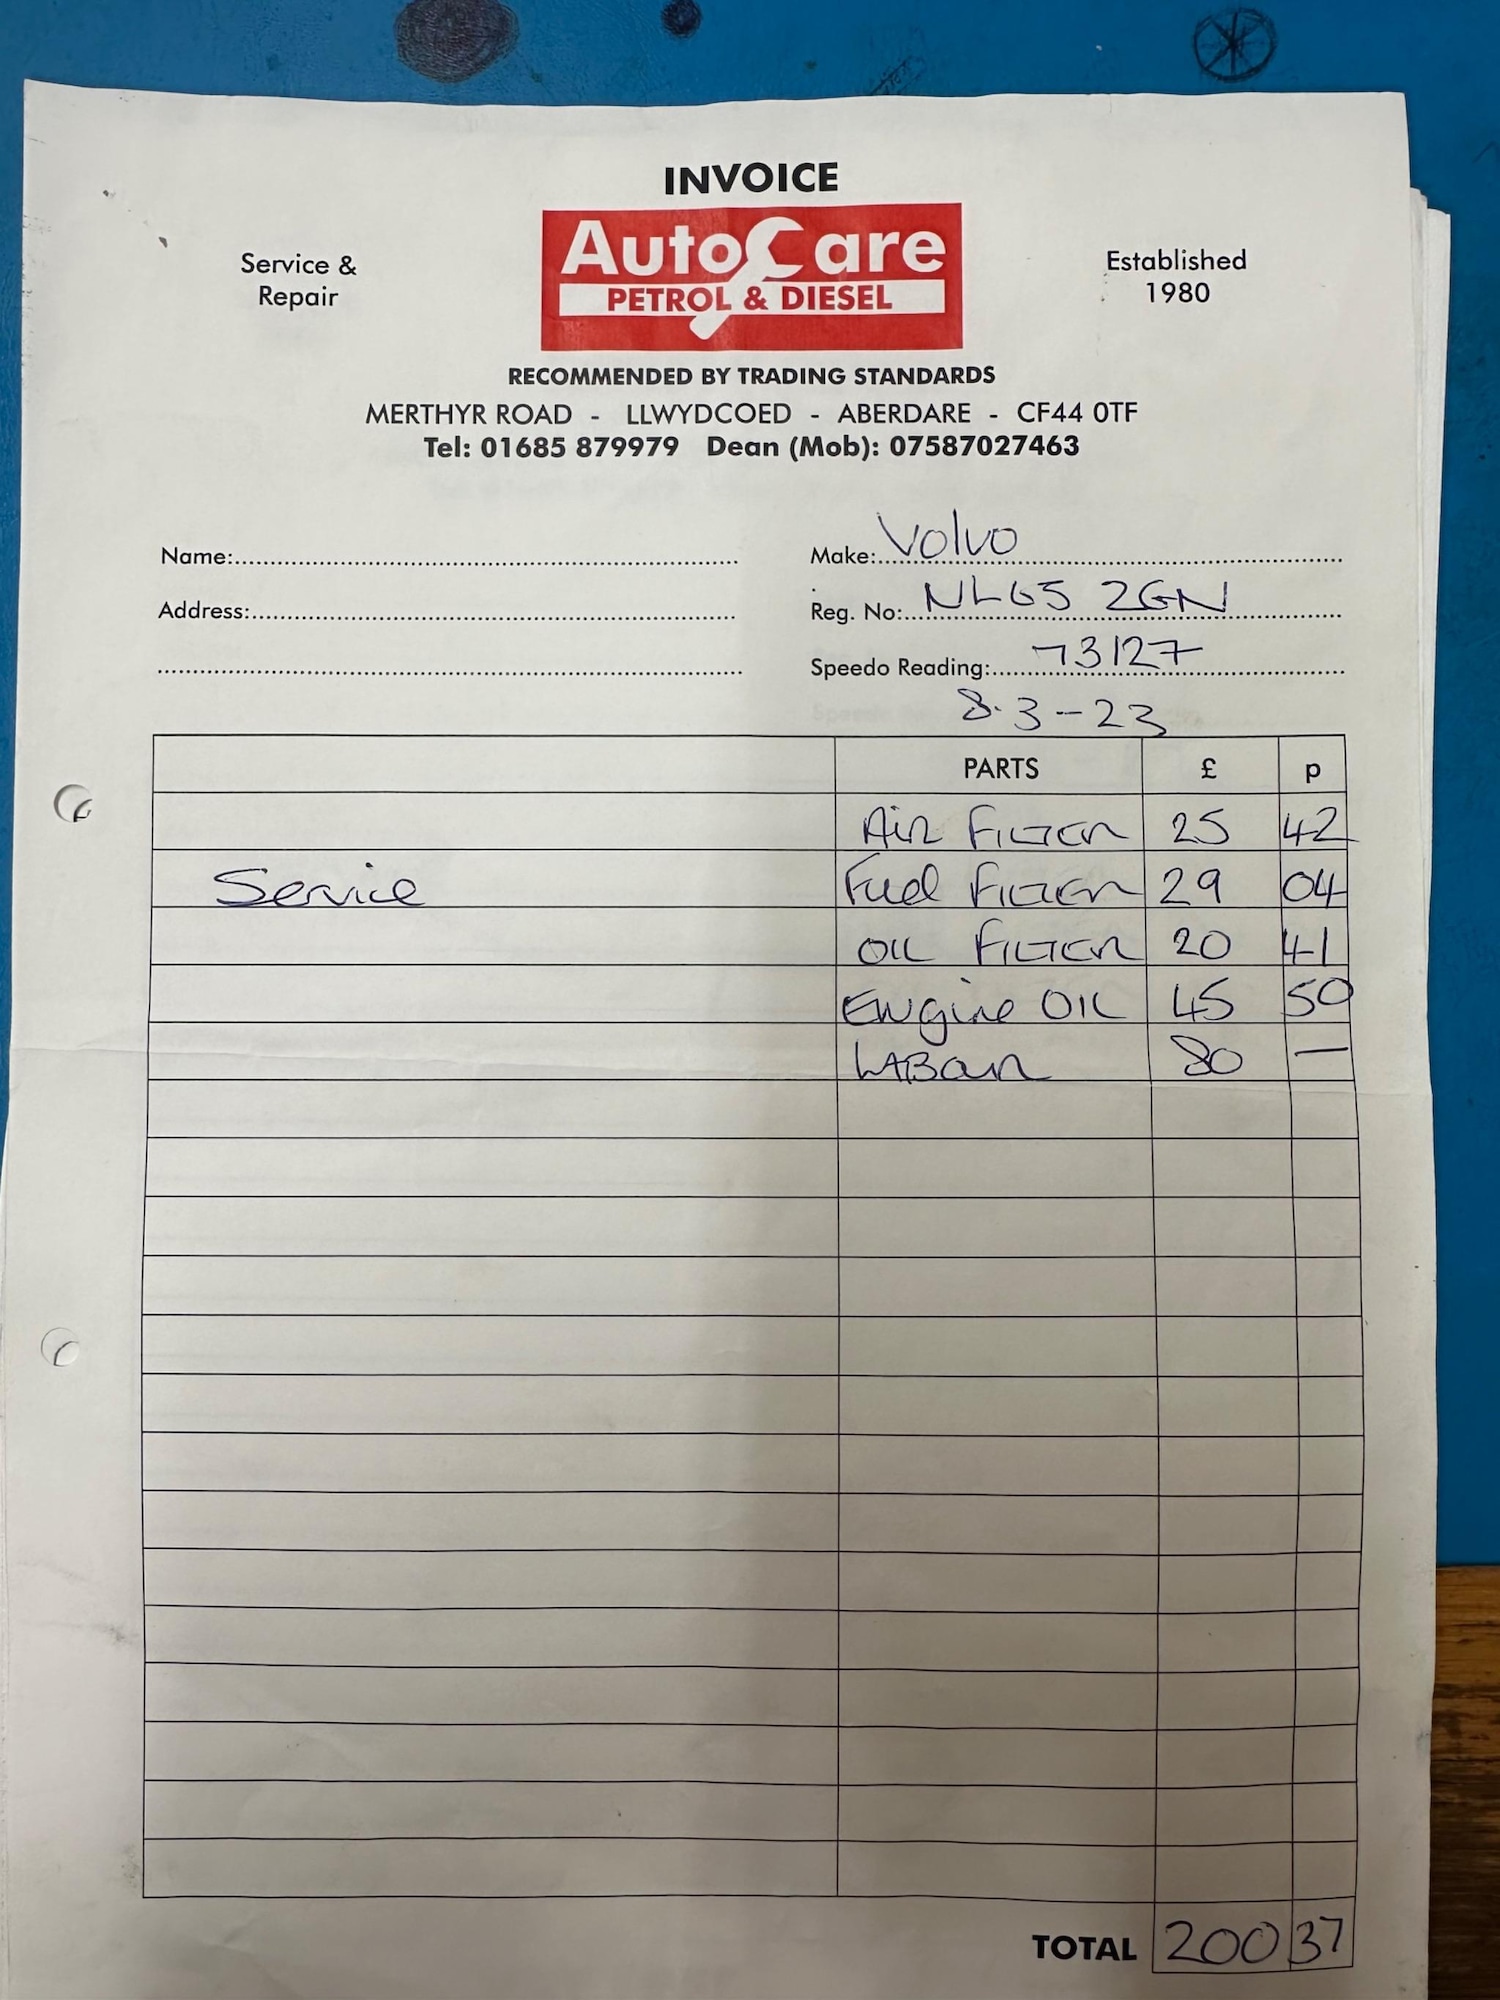 INVOICE
Service &
Repair
AutoCare
PETROL & DIESEL
Established
1980
RECOMMENDED BY TRADING STANDARDS
MERTHYR ROAD - LLWYDCOED - ABERDARE - CF44 0TF
Tel: 01685 879979 Dean (Mob): 07587027463
Name:
Make: Volvo
Address:
Reg. No: NL65 ZGN
Speedo Reading: 73127
8-3-23
PARTS £ p
Air Filter 25 42
Service Fuel Filter 29 04
OIL Filter 20 41
Engine OIL 45 50
LABour 80 —
TOTAL 200 37